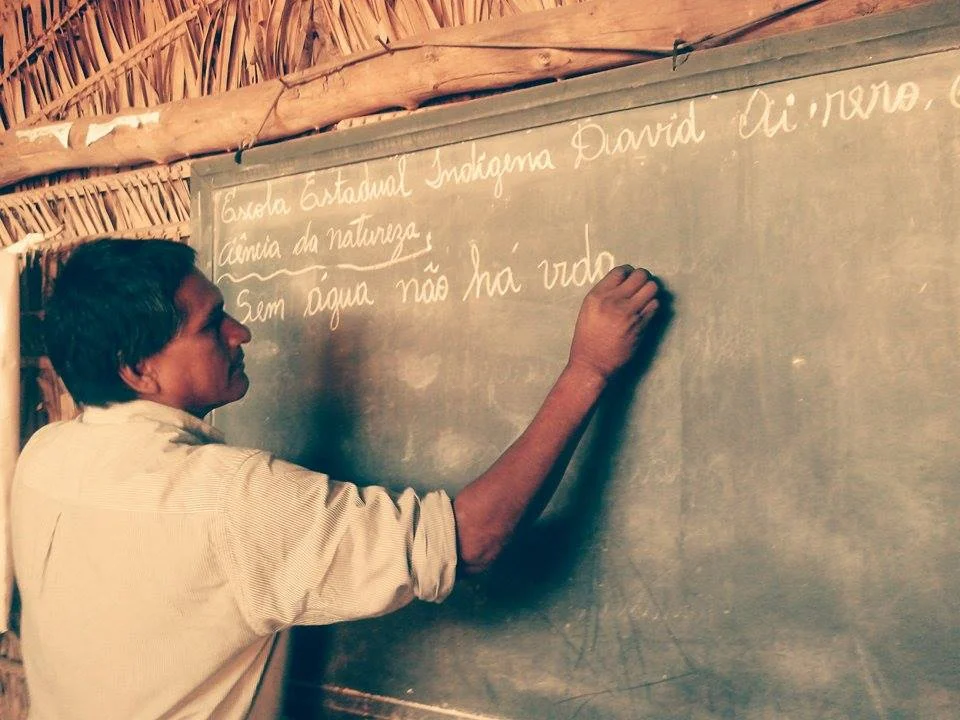 Escola Estadual Indígena David Ai'rero,
Ciência da natureza,
Sem água não há vida